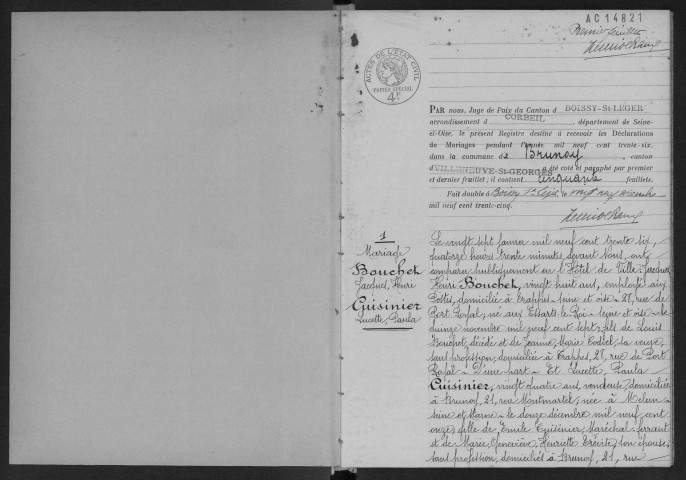 AC 14821
Premier feuillet
ACTES DE L'ÉTAT CIVIL
PAPIER SPÉCIAL
4F
PAR nous, Juge de Paix du Canton d BOISSY-St-LEGER
arrondissement d CORBEIL, département de Seine-
et-Oise, le présent Registre destiné à recevoir les Déclarations
de Mariages pendant l'année mil neuf cent trente-six,
dans la commune de Brunoy, canton
d VILLENEUVE-St-GEORGES a été coté et paraphé par premier
et dernier feuillet; il contient cinquante feuillets.
Fait double à Boissy St Léger, le vingt
mil neuf cent trente-cinq.
1
Mariage
Bouchet
Jacques, Henri
Cuisinier
Lucette, Paula
Le vingt sept janvier mil neuf cent trente six,
quatorze heures trente minutes devant Nous, ont
comparu publiquement en l'Hôtel de Ville: Jacques,
Henri Bouchet, vingt huit ans, employé aux
Postes, domicilié à Trappes- seine et oise- 28, rue de
Port Royal-, né aux Essarts-le-Roi- seine et oise- le
quinze novembre mil neuf cent sept; fils de Louis
Bouchet, décédé et de Jeanne, Marie, sa veuve,
sans profession, domiciliée à Trappes, 28, rue de Port
Royal- D'une part- Et Lucette, Paula
Cuisinier, vingt quatre ans, vendeuse, domiciliée
à Brunoy, 21, rue Montmartel; née à Melun-
seine et Marne- le douze décembre mil neuf cent
onze; fille de Emile Cuisinier, Maréchal-ferrant
et de Marie, Geneviève, Henriette, son épouse,
sans profession, domiciliés à Brunoy, 21, rue